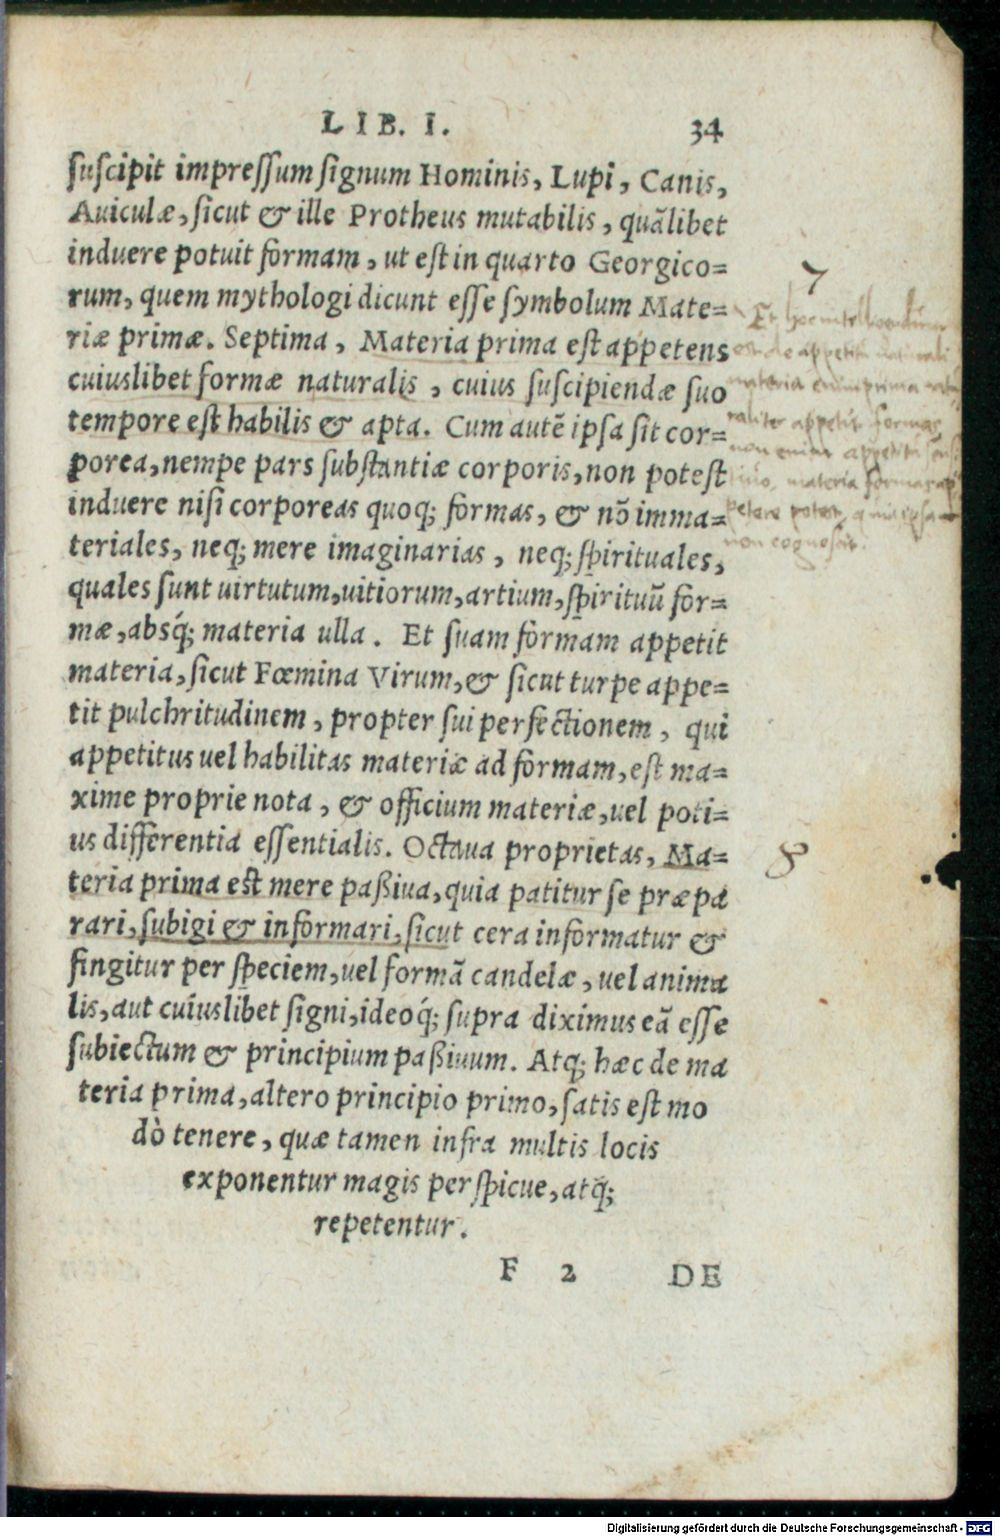 LIB. I. 34
suscipit impressum signum Hominis, Lupi, Canis,
Auiculæ, sicut & ille Protheus mutabilis, quãlibet
induere potuit formam, ut est in quarto Georgico=
rum, quem mythologi dicunt esse symbolum Mate=
riæ primæ. Septima, Materia prima est appetens
cuiuslibet formæ naturalis, cuius suscipiendæ suo
tempore est habilis & apta. Cum autẽ ipsa sit cor=
porea, nempe pars substantiæ corporis, non potest
induere nisi corporeas quoq; formas, & nõ imma=
teriales, neq; mere imaginarias, neq; spirituales,
quales sunt uirtutum, uitiorum, artium, spirituũ for=
mæ, absq́; materia ulla. Et suam formam appetit
materia, sicut Fœmina Virum, & sicut turpe appe=
tit pulchritudinem, propter sui perfectionem, qui
appetitus uel habilitas materiæ ad formam, est ma=
xime proprie nota, & officium materiæ, uel poti=
us differentia essentialis. Octaua proprietas, Ma=
teria prima est mere paßiua, quia patitur se præpa
rari, subigi & informari, sicut cera informatur &
fingitur per speciem, uel formã candelæ, uel anima
lis, aut cuiuslibet signi, ideoq́; supra diximus eã esse
subiectum & principium paßiuum. Atq; hæc de ma
teria prima, altero principio primo, satis est mo
dò tenere, quæ tamen infra multis locis
exponentur magis perspicue, atq́;
repetentur.
F 2 DE
7
Et hoc intelligendum
est de appetitu naturali
materia enim prima
appetit formas
non enim appetitu
materia formas
petere potest, ipsa
non
8
Digitalisierung gefördert durch die Deutsche Forschungsgemeinschaft - DFG